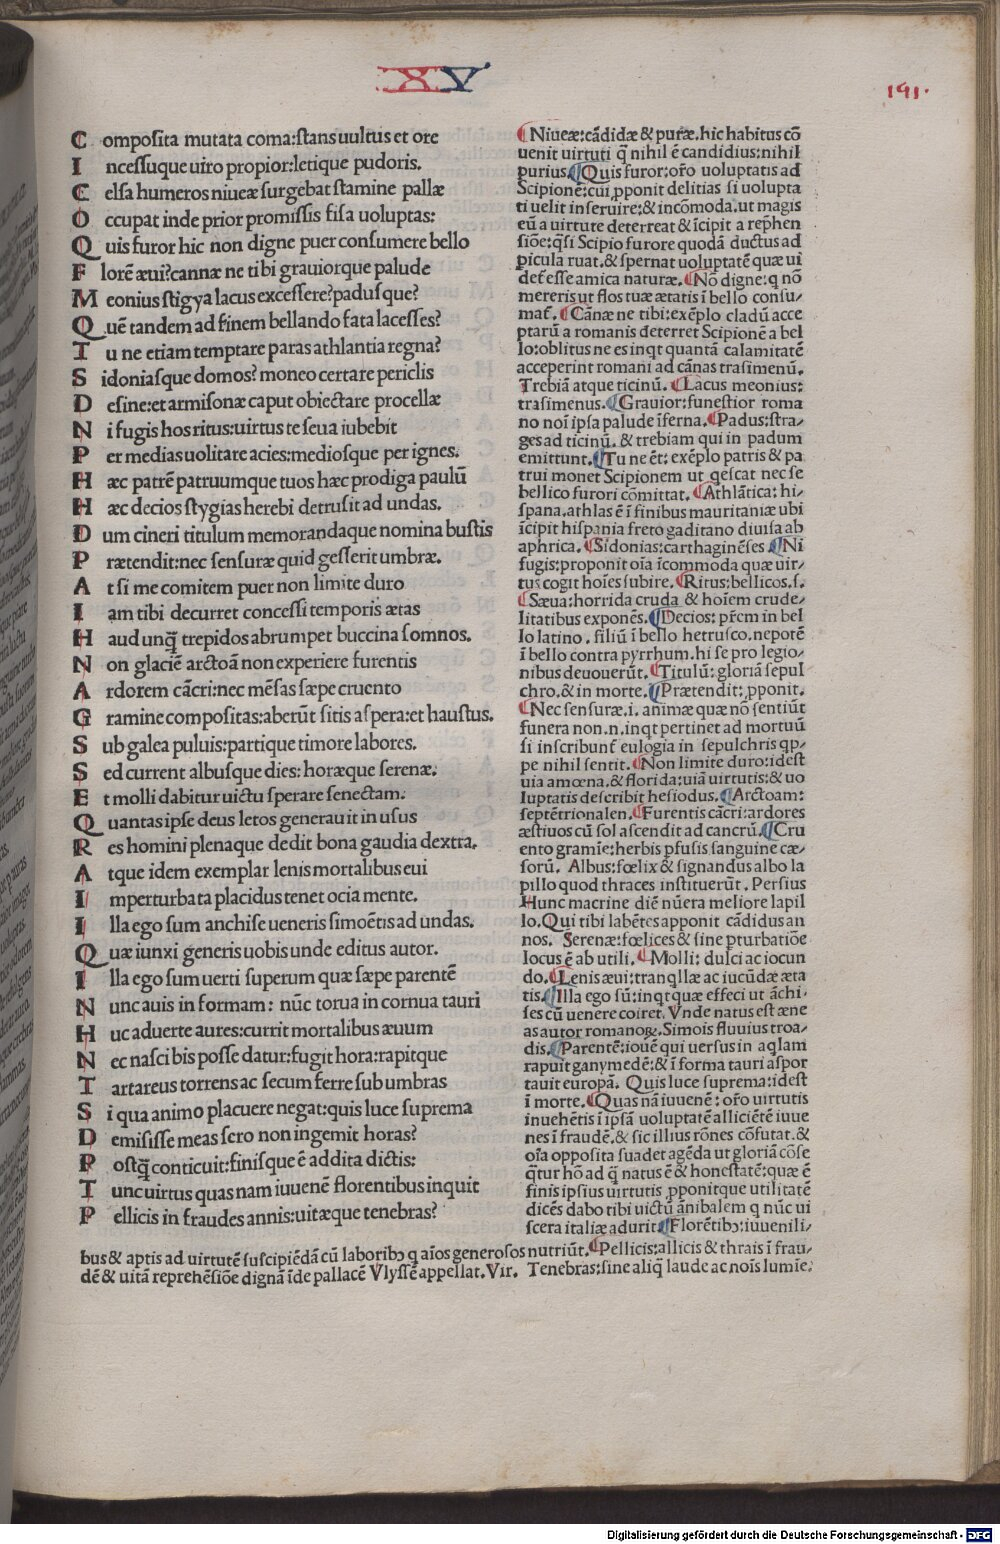 XV
191.
Composita mutata coma:ſtans uultus et ore
Inceſſuque uiro propior:letique pudoris.
Celſa humeros niueæ ſurgebat ſtamine pallæ
Occupat inde prior promiſſis fiſa uoluptas:
Quis furor hic non digne puer conſumere bello
Florē æui?cannæ ne tibi grauiorque palude
Meonius ſtigya lacus exceſſere?paduſque?
Quē tandem ad finem bellando fata laceſſes?
Tu ne etiam temptare paras athlantia regna?
Sidoniaſque domos? moneo certare periclis
Deſine:et armiſonæ caput obiectare procellæ
Ni fugis hos ritus:uirtus te ſeua iubebit
Per medias uolitare acies:medioſque per ignes.
Hæc patrē patruumque tuos hæc prodiga paulū
Hæc decios ſtygias herebi detruſit ad undas.
Dum cineri titulum memorandaque nomina buſtis
Prætendit:nec ſenſuræ quid geſſerit umbræ.
At ſi me comitem puer non limite duro
Iam tibi decurret conceſſi temporis ætas
Haud unq̄ trepidos abrumpet buccina ſomnos.
Non glaciē arctoā non experiere furentis
Ardorem cācri:nec mēſas ſæpe cruento
Gramine compoſitas:aberūt ſitis aſpera:et hauſtus.
Sub galea puluis:partique timore labores.
Sed current albuſque dies: horæque ſerenæ.
Et molli dabitur uictu ſperare ſenectam.
Quantas ipſe deus letos generauit in uſus
Res homini plenaque dedit bona gaudia dextra.
Atque idem exemplar lenis mortalibus eui
Imperturbata placidus tenet ocia mente.
Illa ego ſum anchiſe ueneris ſimoētis ad undas.
Quæ iunxi generis uobis unde editus autor.
Illa ego ſum uerti ſuperum quæ ſæpe parentē
Nunc auis in formam: nūc torua in cornua tauri
Huc aduerte aures:currit mortalibus æuum
Nec naſci bis poſſe datur:fugit hora:rapitque
Tartareus torrens ac ſecum ferre ſub umbras
Si qua animo placuere negat:quis luce ſuprema
Demiſiſſe meas ſero non ingemit horas?
Poſtq̄ conticuit:finiſque ē addita dictis:
Tunc uirtus quas nam iuuenē florentibus inquit
Pellicis in fraudes annis:uitæque tenebras?
Niueæ:cādidæ & puræ.hic habitus cō
uenit uirtuti q̄ nihil ē candidius:nihil
purius. Quis furor:oro uoluptatis ad
Scipionē:cui pponit delitias ſi uolupta
ti uelit inſeruire:& incōmoda.ut magis
eū a uirture deterreat & īcipit a rephen
ſiōe:qſi Scipio furore quodā ductus ad
picula ruat.& ſpernat uoluptatē quæ ui
det eſſe amica naturæ. Nō digne:q nō
mereris ut flos tuæ ætatis ī bello conſu/
mat. Cānæ ne tibi:exēplo cladū acce
ptarū a romanis deterret Scipionē a bel
lo:oblitus ne es inqt quantā calamitatē
acceperint romani ad cānas traſimenū.
Trebiā atque ticinū. Lacus meonius:
traſimenus. Grauior:funeſtior roma
no noī ipſa palude īferna. Padus:ſtra/
ges ad ticinū. & trebiam qui in padum
emittunt. Tu ne ēt: exēplo patris & pa
trui monet Scipionem ut qeſcat nec ſe
bellico furori cōmittat. Athlātica: hi/
ſpana.athlas ē ī finibus mauritaniæ ubi
īcipit hiſpania freto gaditano diuiſa ab
aphrica. Sidonias:carthaginēſes. Ni
fugis:proponit oīa īcommoda quæ uir/
tus cogit hoīes ſubire. Ritus:bellicos.ſ.
Sæua:horrida cruda & hoīem crude/
litatibus exponēs. Decios: prēm in bel
lo latino. filiū ī bello hetruſco.nepotē
ī bello contra pyrrhum.hi ſe pro legio/
nibus deuouerūt. Titulū: gloriā ſepul
chro.& in morte. Prætendit: pponit.
Nec ſenſuræ.i. animæ quæ nō ſentiūt
funera non.n.inqt pertinet ad mortuū
ſi inſcribunt eulogia in ſepulchris qp/
pe nihil ſentit. Non limite duro:ideſt
uia amœna.& florida:uiā uirtutis:& uo
luptatis deſcribit heſiodus. Arctoam:
ſeptētrionalen. Furentis cācri:ardores
æſtiuos cū ſol aſcendit ad cancrū. Cru
ento gramīe:herbis pfuſis ſanguine cæ/
ſorū. Albus:fœlix & ſignandus albo la
pillo quod thraces inſtituerūt. Perſius
Hunc macrine diē nūera meliore lapil
lo.Qui tibi labētes apponit cādidus an
nos. Serenæ:fœlices & ſine pturbatiōe
locus ē ab utili. Molli: dulci ac iocun
do. Lenis æui:tranqllæ ac iucūdæ æta
tis. Illa ego ſū:inqt quæ effeci ut āchi/
ſes cū uenere coiret. Vnde natus eſt æne
as autor romanoꝝ.Simois fluuius troa/
dis. Parentē:iouē qui uerſus in aqlam
rapuit ganymedē:& ī forma tauri aſpor
tauit europā. Quis luce ſuprema:ideſt
ī morte. Quas nā iuuenē: oro uirtutis
inuehētis ī ipſā uoluptatē alliciētē iuue
nes ī fraudē.& ſic illius rōnes cōfutat.&
oīa oppoſita ſuadet agēda ut gloriā cōſe
qtur hō ad q̄ natus ē & honeſtatē:quæ ē
finis ipſius uirtutis pponitque utilitatē
dicēs dabo tibi uictū ānibalem q nūc ui
ſcera italiæ adurit. Florētibꝫ:iuuenili/
bus & aptis ad uirtutē ſuſcipiēdā cū laboribꝫ q aīos generoſos nutriūt. Pellicis:allicis & thrais ī frau/
dē & uitā reprehēſiōe dignā īde pallacē Vlyſſē appellat.Vir. Tenebras:ſine aliq laude ac noīs lumīe.
Digitalisierung gefördert durch die Deutsche Forschungsgemeinschaft - DFG